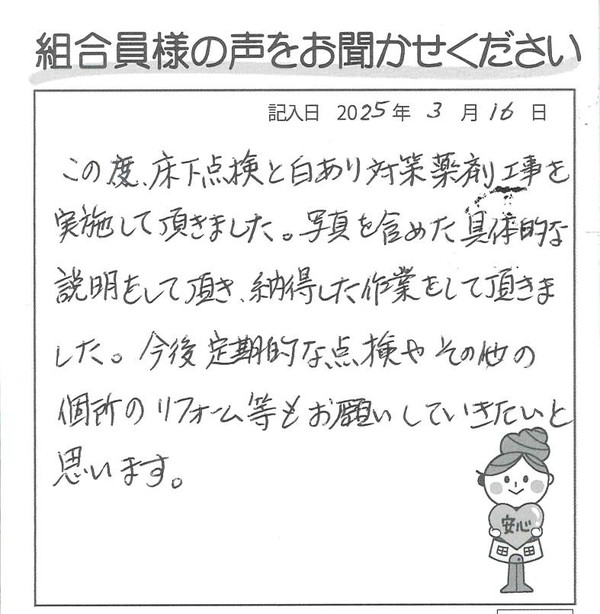 組合員様の声をお聞かせください
記入日 2025年 3 月 16 日
この度、床下点検と白あり対策薬剤工事を
実施して頂きました。写真を含めた具体的な
説明をして頂き、納得した作業をして頂きま
した。今後定期的な点検やその他の
個所のリフォーム等もお願いしていきたいと
思います。
安心